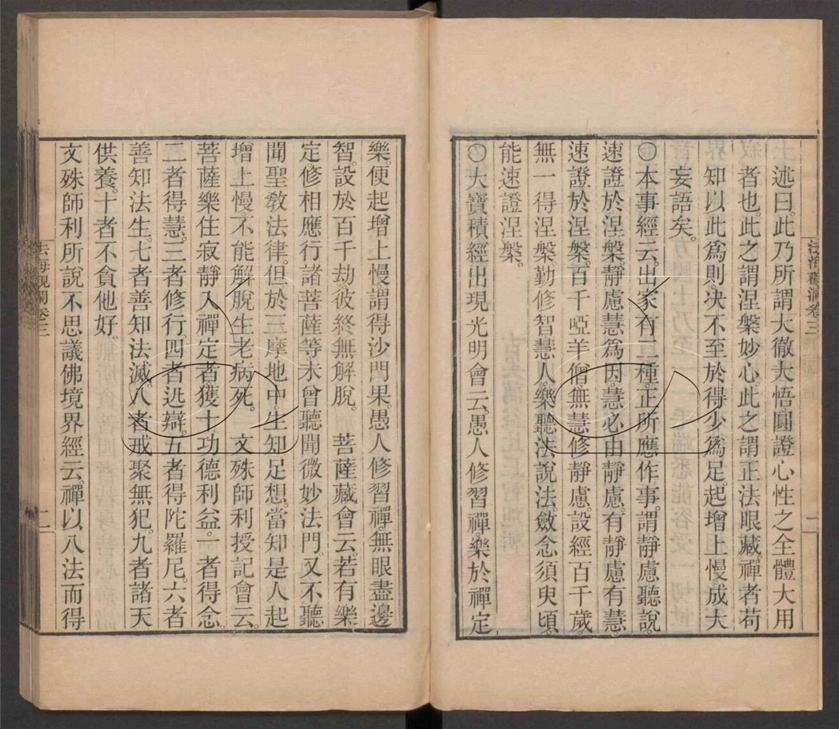 述曰此乃所謂大徹大悟圓證心性之全體大用
者也此之謂涅槃妙心此之謂正法眼藏禪者苟
知以此爲則決不至於得少爲足起增上慢成大
妄語矣。
○本事經云。出家有二種正所應作事。謂靜慮聽說
速證於涅槃靜慮慧爲因。慧必由靜慮。有靜慮有慧
速證於涅槃。百千啞羊僧。無慧修靜慮。設經百千歲
無一得涅槃勤修智慧人。樂聽法說法。斂念須臾頃
能速證涅槃。
○大寶積經出現光明會云。愚人修習禪樂於禪定
樂。便起增上慢謂得沙門果愚人修習禪。無眼盡邊
智。設於百千劫彼終無解脫。　菩薩藏會云。若有樂
定修相應行諸菩薩等。未曾聽聞微妙法門。又不聽
聞聖教法律。但於三摩地中生知足想。當知是人起
增上慢不能解脫生老病死。　文殊師利授記會云。
菩薩樂住寂靜入禪定者獲十功德利益。一者得念。
二者得慧。三者修行四者迅辯。五者得陀羅尼。六者
善知法生。七者善知法滅。八者戒聚無犯。九者諸天
供養。十者不貪他好。
文殊師利所說不思議佛境界經云禪以八法而得
法海觀瀾卷三
二